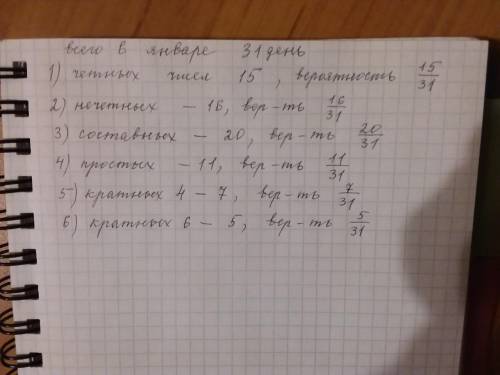 всего в январе 31 день
1) четных чисел 15, вероятность 15/31
2) нечетных - 16, вер-ть 16/31
3) составных - 20, вер-ть 20/31
4) простых - 11, вер-ть 11/31
5) кратных 4 - 7, вер-ть 7/31
6) кратных 6 - 5, вер-ть 5/31